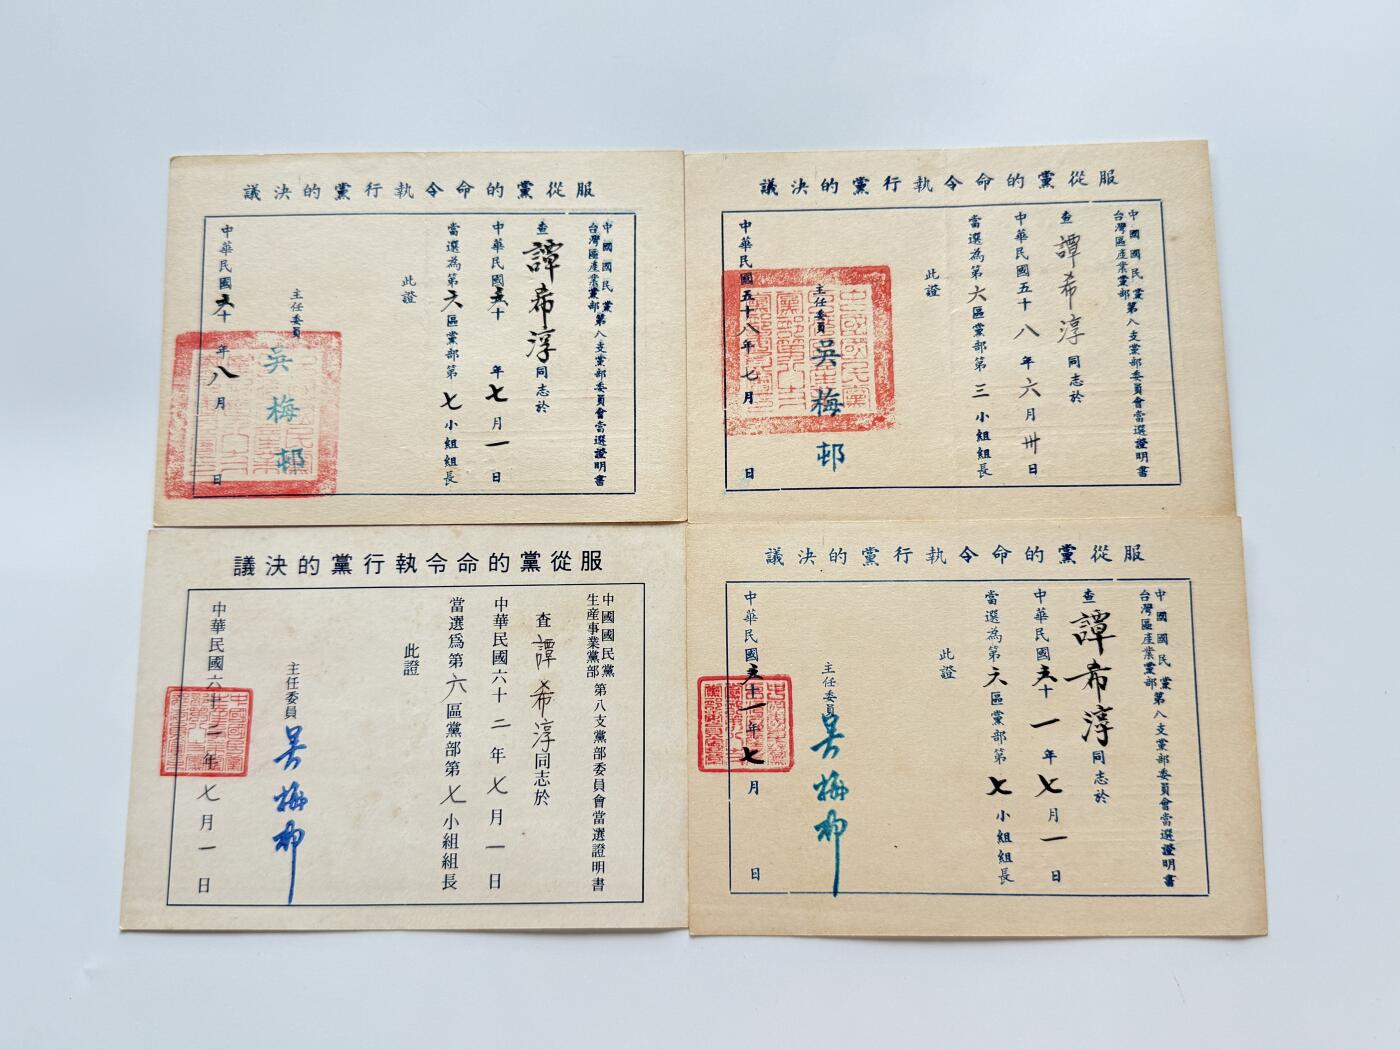 服從黨的命令執行黨的決議
中國國民黨
台灣區產業黨部
第八支黨部委員會當選證明書
查譚希淳同志於
中華民國五十年七月一日
當選為第六區黨部第七小組組長
此證
主任委員吳梅邨
中華民國五十年八月 日
服從黨的命令執行黨的決議
中國國民黨
台灣區產業黨部
第八支黨部委員會當選證明書
查譚希淳同志於
中華民國五十八年六月卅日
當選為第六區黨部第三小組組長
此證
主任委員吳梅邨
中華民國五十八年七月 日
服從黨的命令執行黨的決議
中國國民黨
生產事業黨部
第八支黨部委員會當選證明書
查譚希淳同志於
中華民國六十二年七月一日
當選爲第六區黨部第七小組組長
此證
主任委員吳梅邨
中華民國六十二年七月一日
服從黨的命令執行黨的決議
中國國民黨
台灣區產業黨部
第八支黨部委員會當選證明書
查譚希淳同志於
中華民國五十一年七月一日
當選為第六區黨部第七小組組長
此證
主任委員吳梅邨
中華民國五十一年七月 日